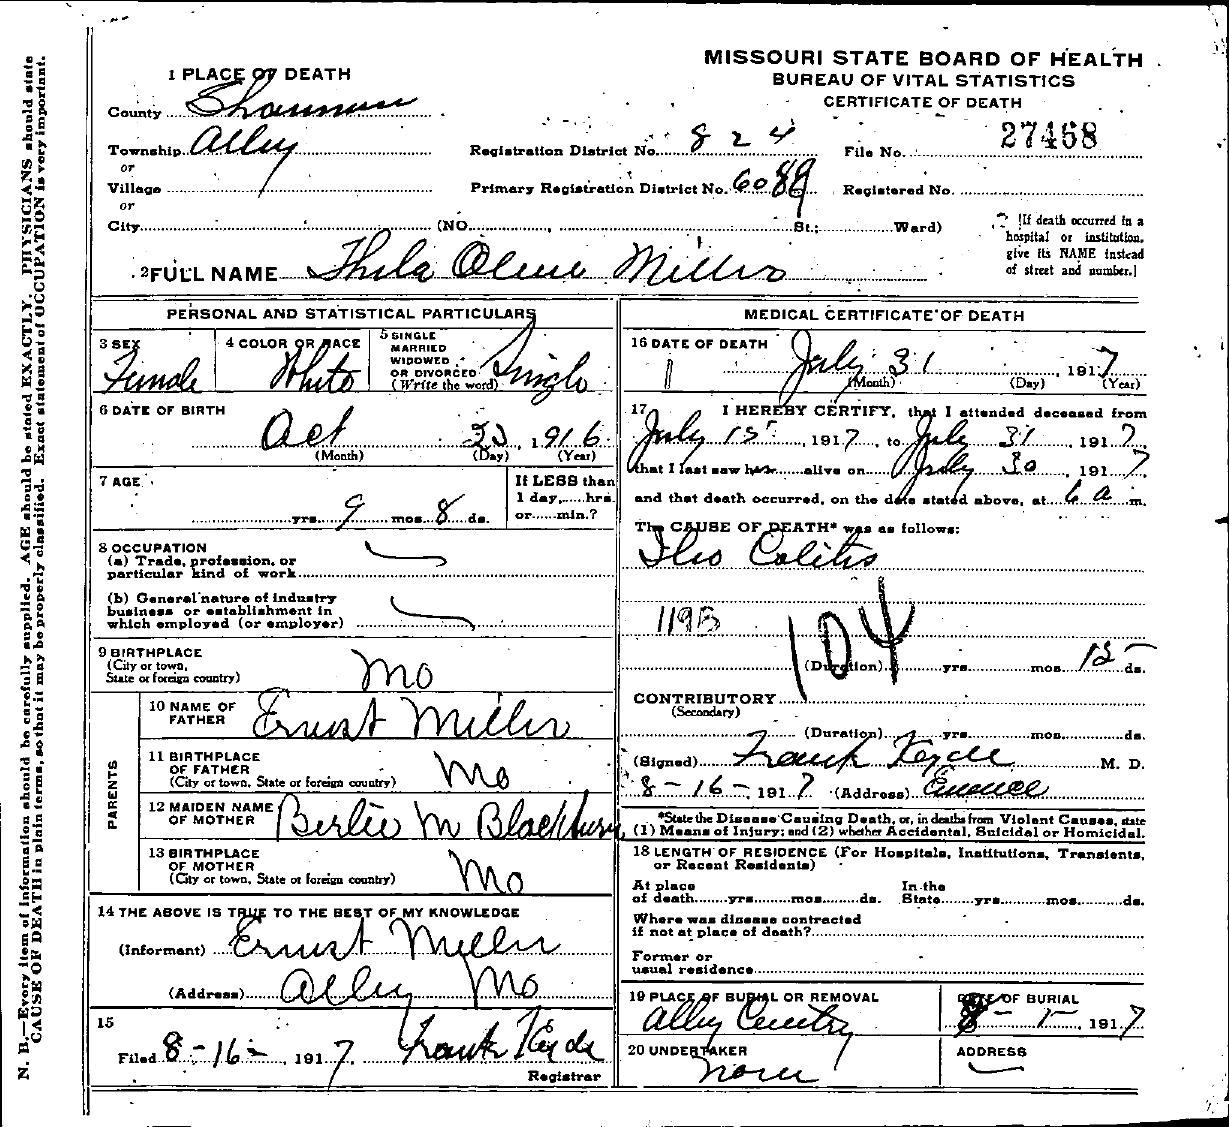 MISSOURI STATE BOARD OF HEALTH
BUREAU OF VITAL STATISTICS
CERTIFICATE OF DEATH
1 PLACE OF DEATH
County Shannon
Township Alley
or
Village
or
City (NO. , St.; Ward)
Registration District No. 824 File No. 27468
Primary Registration District No. 6089 Registered No.
[If death occurred in a
hospital or institution,
give its NAME instead
of street and number.]
2 FULL NAME Miller
PERSONAL AND STATISTICAL PARTICULARS
3 SEX Female
4 COLOR OR RACE White
5 SINGLE
MARRIED
WIDOWED
OR DIVORCED
(Write the word) Single
6 DATE OF BIRTH
Oct 23, 1916
(Month) (Day) (Year)
7 AGE
yrs. 9 mos. 8 ds.
If LESS than
1 day, hrs.
or min.?
8 OCCUPATION
(a) Trade, profession, or
particular kind of work
(b) General nature of industry
business or establishment in
which employed (or employer)
9 BIRTHPLACE
(City or town,
State or foreign country) Mo
PARENTS
10 NAME OF
FATHER Ernest Miller
11 BIRTHPLACE
OF FATHER
(City or town, State or foreign country) Mo
12 MAIDEN NAME
OF MOTHER Bertie M Blackburn
13 BIRTHPLACE
OF MOTHER
(City or town, State or foreign country) Mo
14 THE ABOVE IS TRUE TO THE BEST OF MY KNOWLEDGE
(Informant) Ernest Miller
(Address) Alley Mo
15
Filed 8-16-, 1917. Frank Hyde
Registrar
MEDICAL CERTIFICATE OF DEATH
16 DATE OF DEATH
July 31, 1917
(Month) (Day) (Year)
17 I HEREBY CERTIFY, that I attended deceased from
July 15, 1917, to July 31, 1917,
that I last saw her alive on July 30, 1917
and that death occurred, on the date stated above, at 6 a m.
The CAUSE OF DEATH* was as follows:
Ileo Colitis
119B
104
(Duration) yrs. mos. 15 ds.
CONTRIBUTORY
(Secondary)
(Duration) yrs. mos. ds.
(Signed) Frank Hyde M. D.
8-16-, 1917 (Address) Eminence
*State the Disease Causing Death, or, in deaths from Violent Causes, state
(1) Means of Injury; and (2) whether Accidental, Suicidal or Homicidal.
18 LENGTH OF RESIDENCE (For Hospitals, Institutions, Transients,
or Recent Residents)
At place In the
of death yrs. mos. ds. State yrs. mos. ds.
Where was disease contracted
if not at place of death?
Former or
usual residence
19 PLACE OF BURIAL OR REMOVAL
Alley Cemetry
DATE OF BURIAL
8-1-, 1917
20 UNDERTAKER
None
ADDRESS
N. B.—Every item of information should be carefully supplied. AGE should be stated EXACTLY. PHYSICIANS should state
CAUSE OF DEATH in plain terms, so that it may be properly classified. Exact statement of OCCUPATION is very important.